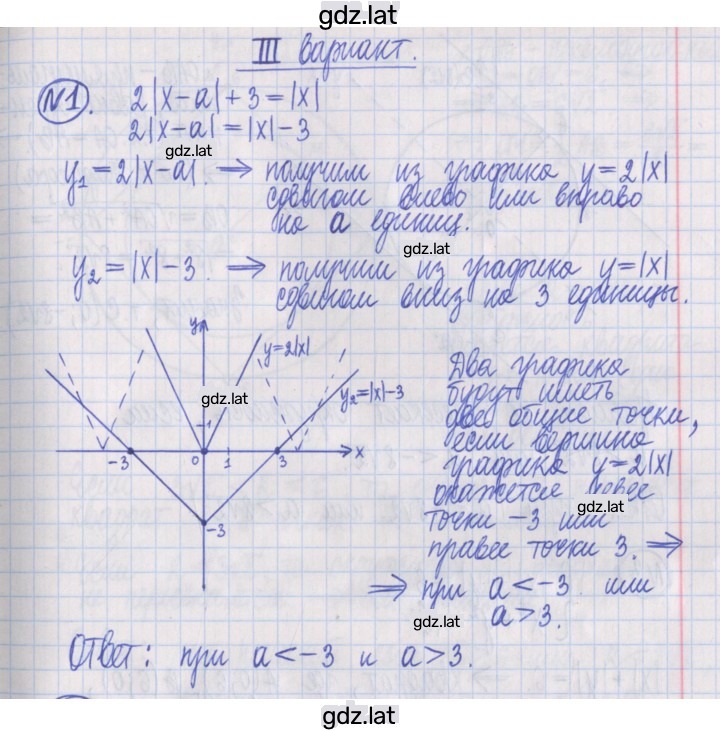 gdz.lat
III вариант.
№1. 2|x-a|+3=|x|
2|x-a|=|x|-3
gdz.lat
y₁=2|x-a|. ⟹ получим из графика y=2|x|
сдвигом влево или вправо
на a единиц.
gdz.lat
y₂=|x|-3. ⟹ получим из графика y=|x|
сдвигом вниз на 3 единицы.
y
y=2|x|
gdz.lat
y₂=|x|-3
1
-3 0 1 3 x
-3
Два графика
будут иметь
две общие точки,
если вершина
графика y=2|x|
окажется левее
gdz.lat
точки -3 или
правее точки 3. ⟹
⟹ при a<-3 или
gdz.lat
a>3.
Ответ: при a<-3 и a>3.
gdz.lat